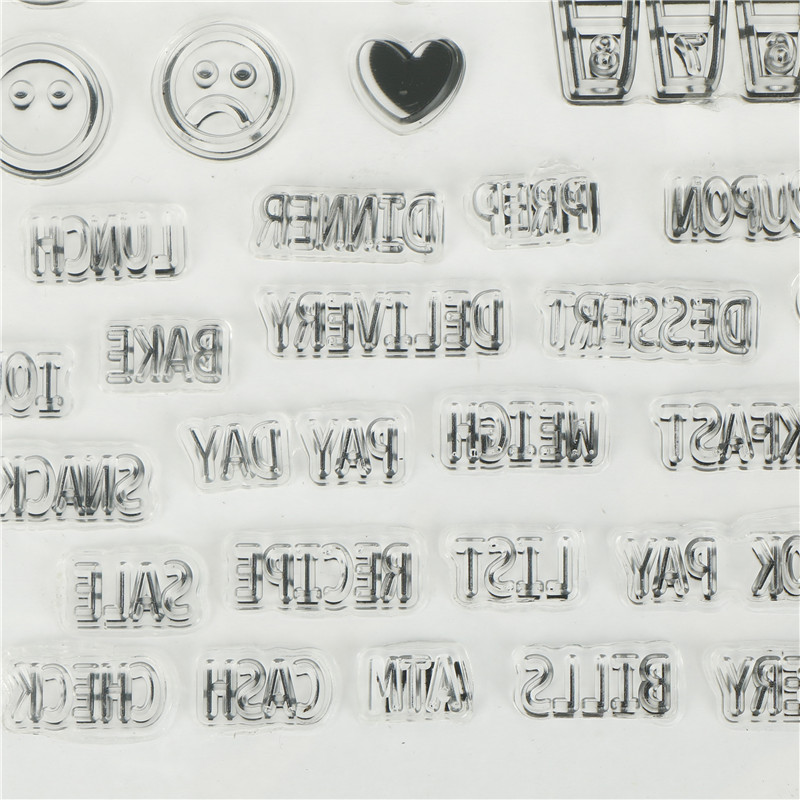 8 7 6
LUNCH DINNER PREP OUPON
DELIVERY DESSERT
BAKE
DAY PAY WEIGH KFAST
SNACK
SALE RECIPE LIST PAY OK
CHECK CASH ATM BILLS ERY